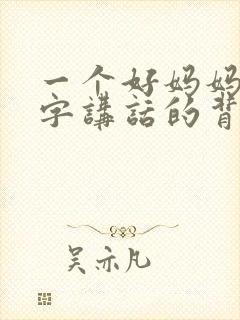 一个好妈妈
字講話的背
吴亦凡